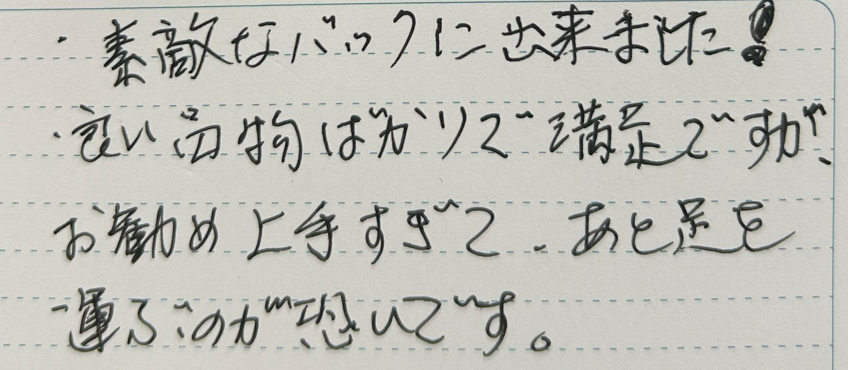 ・素敵なバックに出来ました!
・良い品物ばかりで満足ですが、
お勧め上手すぎて、あと足を
運ぶのが恐いです。